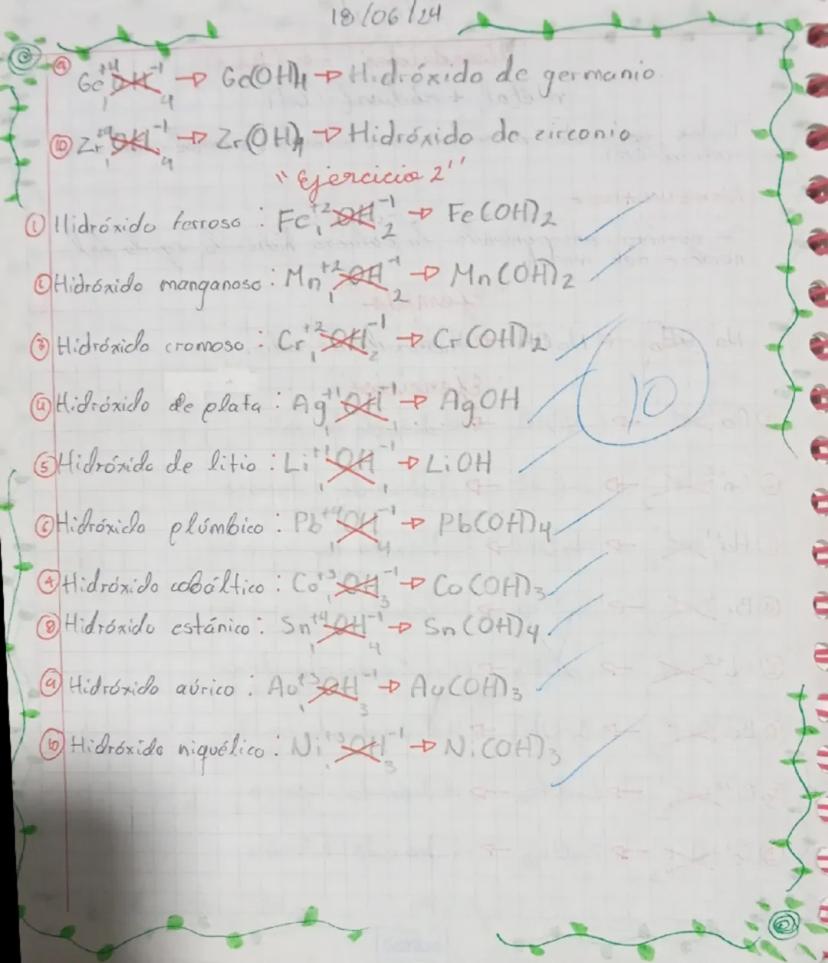 18/06/24
⑨ Ge⁺⁴₁ OH⁻¹₄ → Ge(OH)₄ → Hidróxido de germanio
⑩ Zr⁺⁴₁ OH⁻¹₄ → Zr(OH)₄ → Hidróxido de zirconio
"Ejercicio 2"
① Hidróxido ferroso : Fe⁺²₁ OH⁻¹₂ → Fe(OH)₂
② Hidróxido manganoso : Mn⁺²₁ OH⁻¹₂ → Mn(OH)₂
③ Hidróxido cromoso : Cr⁺²₁ OH⁻¹₂ → Cr(OH)₂
④ Hidróxido de plata : Ag⁺¹₁ OH⁻¹₁ → AgOH
10
⑤ Hidróxido de litio : Li⁺¹₁ OH⁻¹₁ → LiOH
⑥ Hidróxido plúmbico : Pb⁺⁴₁ OH⁻¹₄ → Pb(OH)₄
⑦ Hidróxido cobáltico : Co⁺³₁ OH⁻¹₃ → Co(OH)₃
⑧ Hidróxido estánico : Sn⁺⁴₁ OH⁻¹₄ → Sn(OH)₄
⑨ Hidróxido aúrico : Au⁺³₁ OH⁻¹₃ → Au(OH)₃
⑩ Hidróxido niquélico : Ni⁺³₁ OH⁻¹₃ → Ni(OH)₃